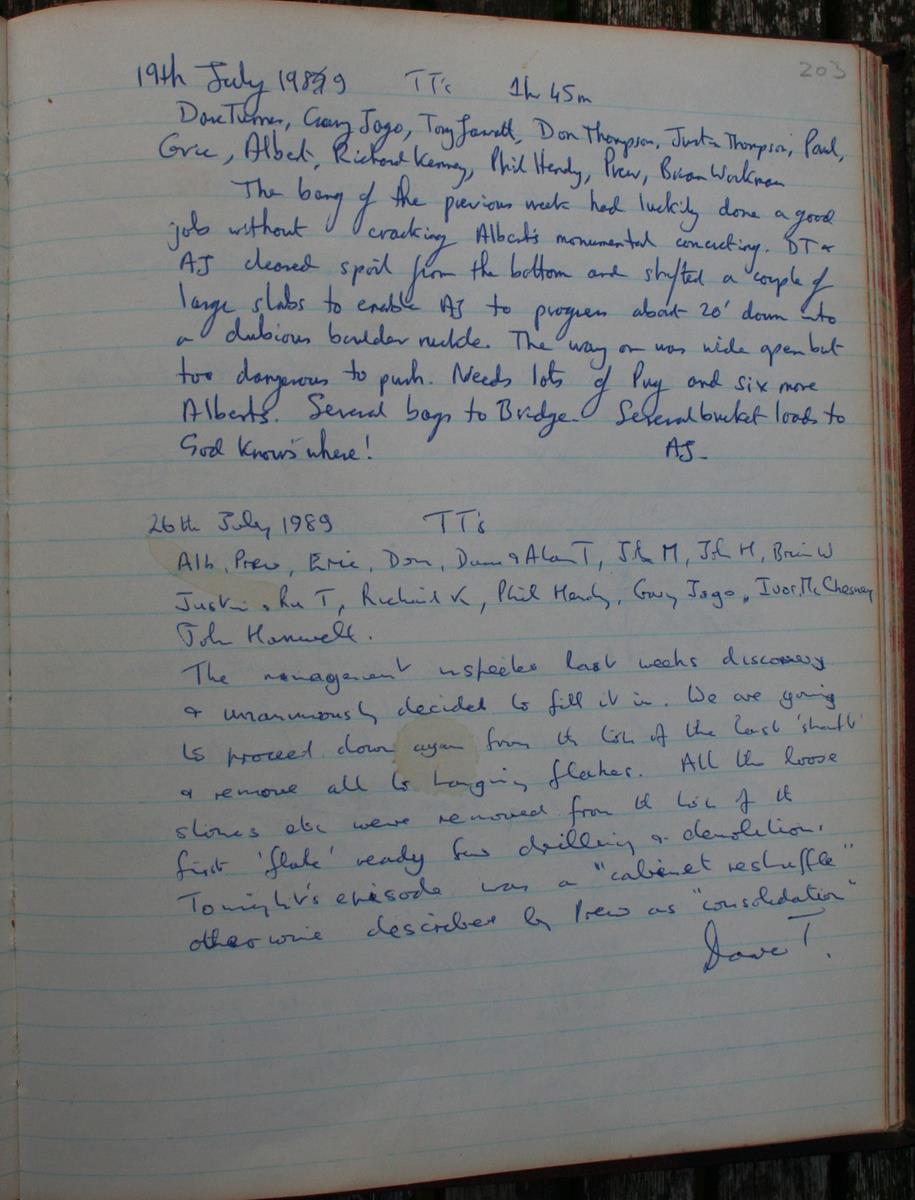 203
19th July 1989 TT's 1h 45m
Dave Turner, Gary Jago, Tony Jarratt, Don Thompson, Justin Thompson, Paul,
Eric, Albert, Richard Kenney, Phil Hendy, Prew, Brian Workman
The bang of the previous week had luckily done a good
job without cracking Albert's monumental concreting. DT &
AJ cleared spoil from the bottom and shifted a couple of
large slabs to enable AJ to progress about 20' down into
a dubious boulder ruckle. The way on was wide open but
too dangerous to push. Needs lots of Pug and six more
Alberts. Several bags to Bridge. Several bucket loads to
God knows where! AJ-
26th July 1989 TT's
Alb, Prew, Eric, Don, Dave & Alan T, Jth M, Joh H, Brian W
Justin, T, Richard K, Phil Hendy, Gary Jago, Ivor McChesney
John Hanwell.
The management inspected last weeks discovery
& unanimously decided to fill it in. We are going
to proceed down again from th lip of the last 'shaft'
& remove all to hanging flakes. All th loose
stones etc were removed from th lip of th
first 'flake' ready for drilling & demolition.
Tonight's episode was a "cabinet reshuffle"
otherwise described by Prew as "consolidation"
Dave T.